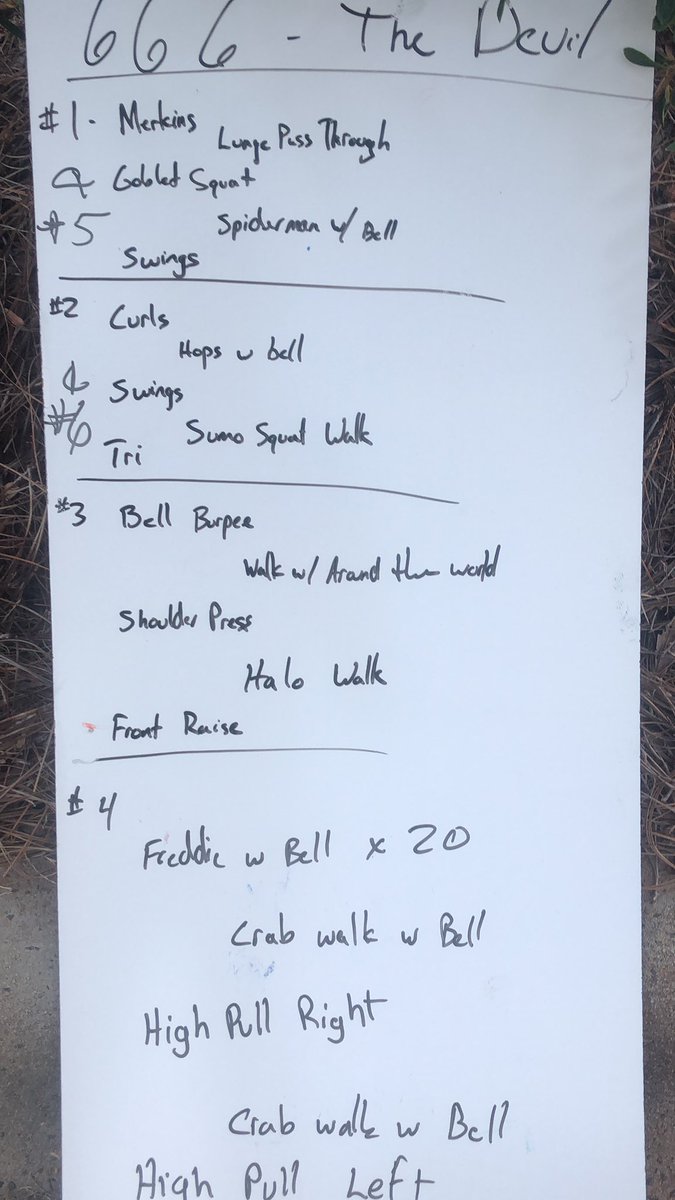 666 - The Devil
#1- Merkins
Lunge Pass Through
& Goblet Squat
#5
Spiderman w/ Bell
Swings
#2 Curls
Hops w bell
& Swings
#6
Sumo Squat Walk
Tri
#3 Bell Burpee
Walk w/ Around the world
Shoulder Press
Halo Walk
Front Raise
#4
Freddie w Bell x 20
Crab walk w Bell
High Pull Right
Crab walk w Bell
High Pull Left